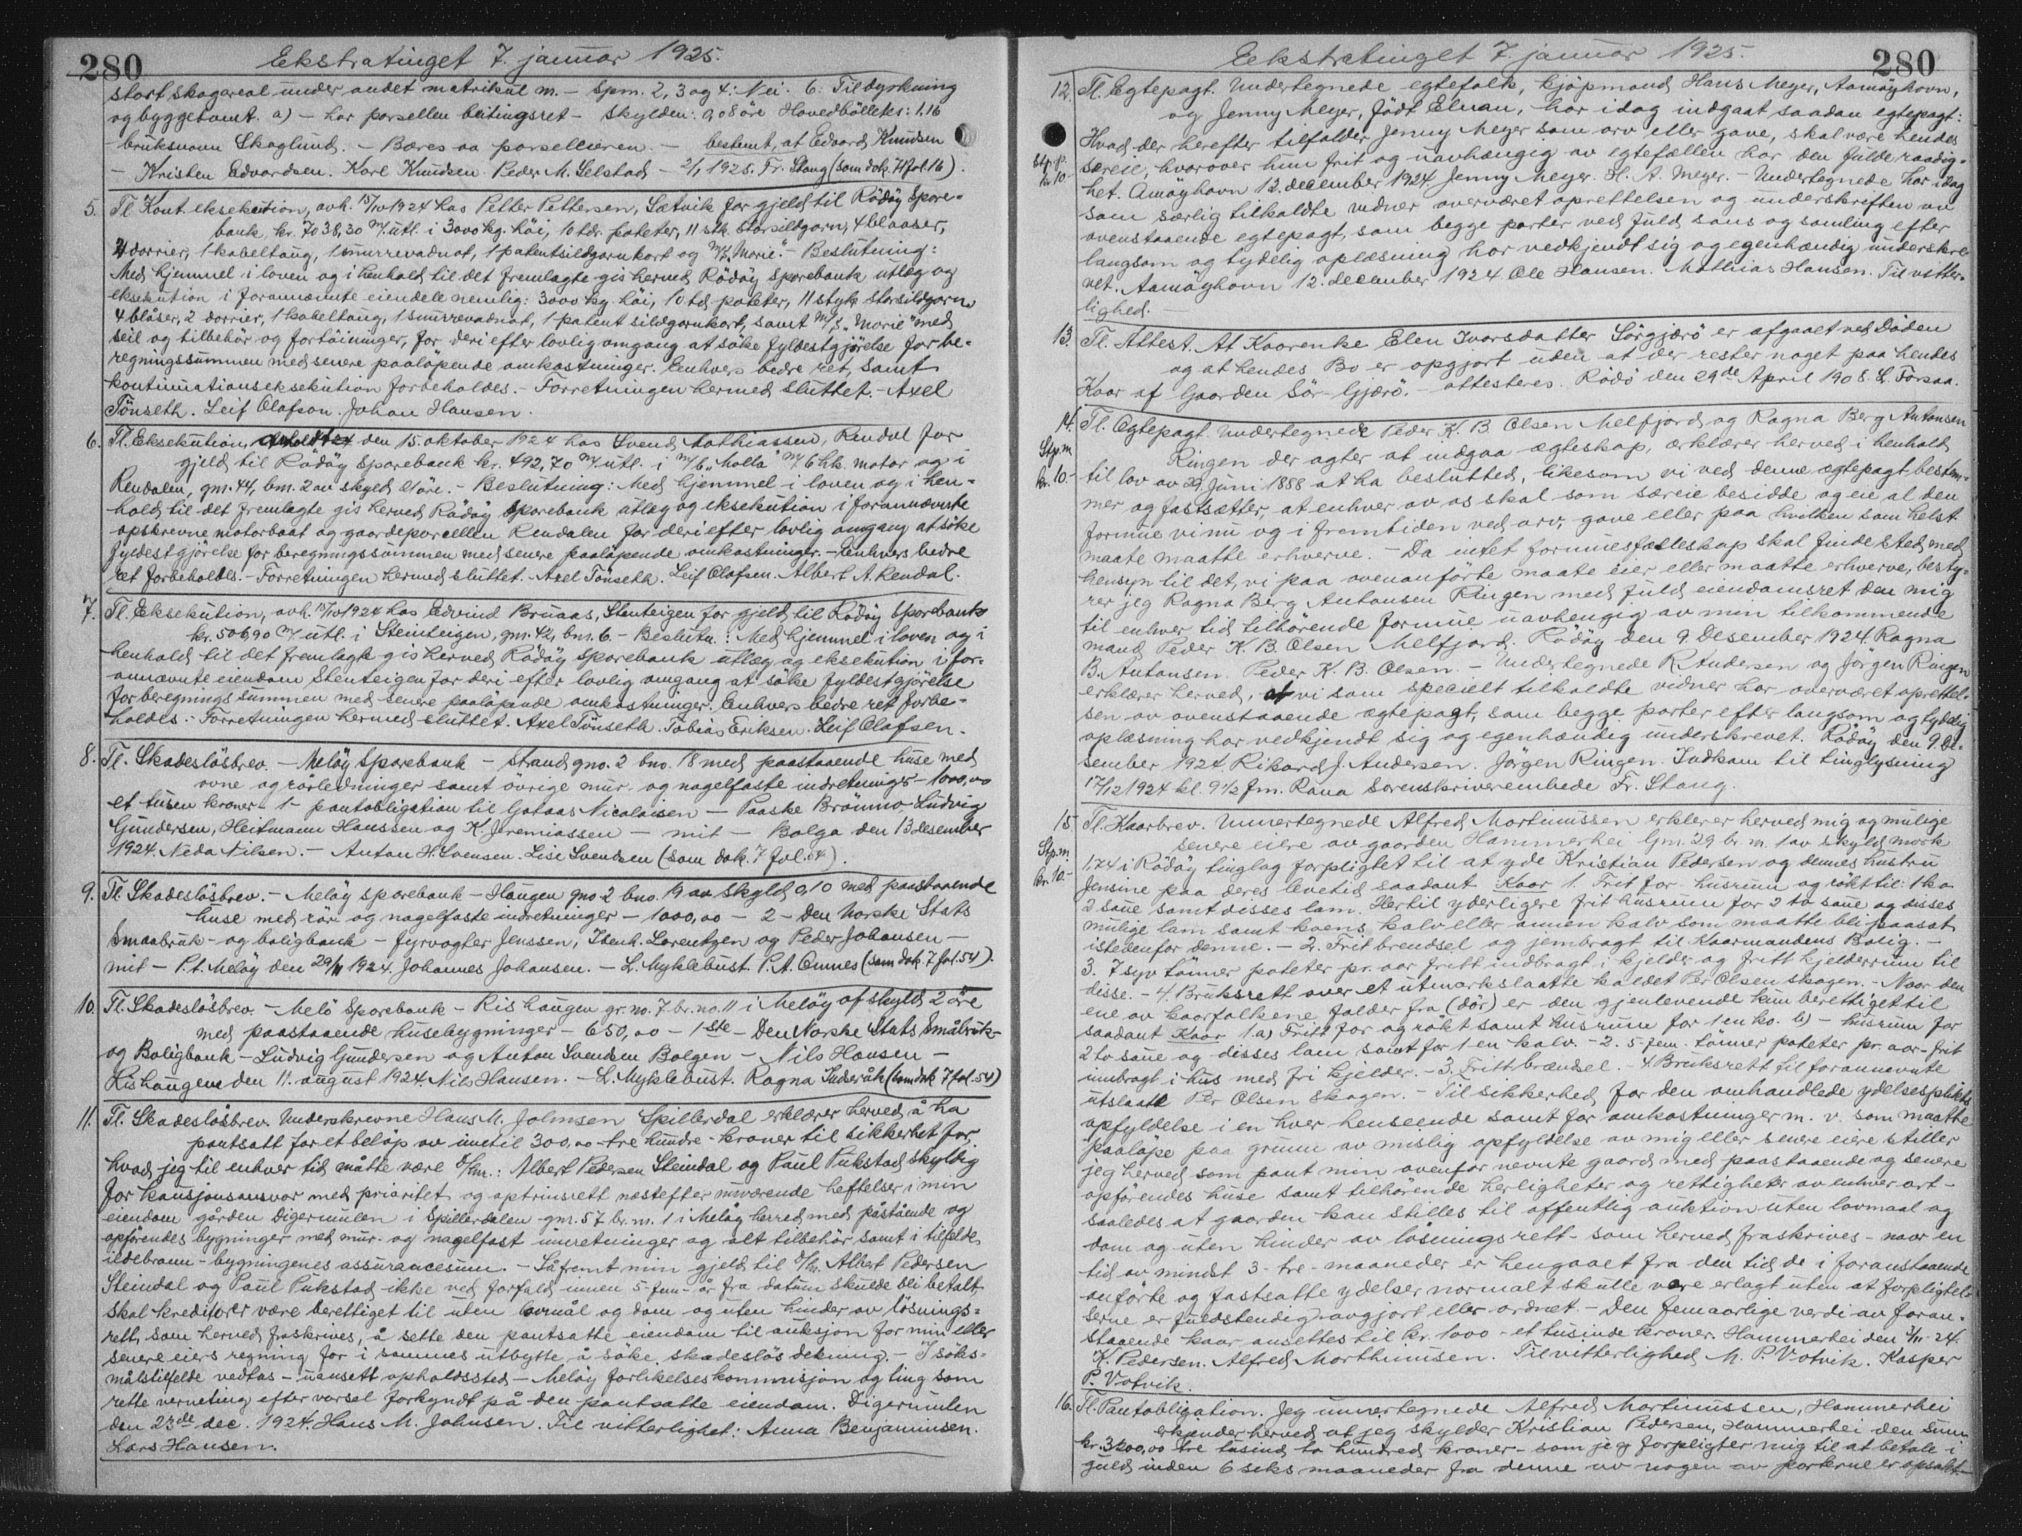 280
Ekstratinget 7. januar 1925.
stort skogareal under andet matrikul m. - Spm. 2, 3 og 4: Nei. 6: Til dyrkning
og byggetomt. a) - har parsellen beitingsret - Skylden: 0,08 öre Hovedbölleks: 1.16
bruksnavn Skoglund. - Bæres av parselleieren. - bestemt, at Edvard Knudsen
- Kristen Edvardsen. Karl Knudsen Peder M. Selstad - 2/1 1925. Fr. Stang (som dok. 7 fol. 16).
5. Tl. Kont. eksekution, avh. 15/10 1924 hos Petter Pettersen, Sætvik for gjeld til Rödöy Spare-
bank kr. 7038,30 m/utl. i 3000 kg. höi, 10 tdr poteter, 11 stk storsildgarn, 4 blaaser,
2 dorrier, 1 kabeltaug, 1 snurrevadnot, 1 patentsildgarnkort og m/s "Marie". - Beslutning:
Med hjemmel i loven og i henhold til det fremlagte gis herved Rödöy Sparebank utlæg og
eksekution i forannævnte eiendele nemlig: 3000 kg. höi, 10 td poteter, 11 styk storsildgarn
4 blåser, 2 dorrier, 1 kabeltaug, 1 snurrevadnot, 1 patent sildgarnkort, samt m/s "Marie" med
seil og tilbehör og fortöininger, for deri efter lovlig omgang at söke fyldestgjörelse for be-
regningssummen med senere paalöpende omkostninger. Enhvers bedre ret, samt
kontinuationseksekution forbeholdes. - Forretningen hermed sluttet. - Axel
Tönseth. Leif Olafson. Johan Hansen.
6. Tl. Eksekution, avholdt den 15. oktober 1924 hos Svend Mathiassen, Rendal for
gjeld til Rödöy Sparebank kr. 492,70 m/utl. i m/b "Molla" m/6 hk. motor og i
Rendalen, gm. 44, bm. 2 av skyld öre. - Beslutning: Med hjemmel i loven og i hen-
hold til det fremlagte gis herved Rödöy Sparebank utlæg og eksekution i forannævnte
opskrevne motorbaat og gaardeparcellen Rendalen for deri efter lovlig omgang at söke
fyldestgjörelse for beregningssummen med senere paalöpende omkostninger. - Enhvers bedre
ret forbeholdes. - Forretningen hermed sluttet. Axel Tönseth. Leif Olafsen. Albert A. Rendal.
7. Tl. Eksekution, avh. 15/10 1924 hos Edvind Bruaas, Stenteigen for gjeld til Rödöy Sparebank
kr. 506,90 m/utl. i Steinteigen, gm. 42, bm. 6. - Beslutn.: Med hjemmel i loven og i
henhold til det fremlagte gis herved Rödöy Sparebank utlæg og eksekution i for-
annævnte eiendom Stenteigen for deri efter lovlig omgang at söke fyldestgjörelse
for beregningssummen med senere paalöpende omkostninger. Enhvers bedre ret forbe-
holdes. - Forretningen hermed sluttet. Axel Tönseth. Tobias Eriksen. Leif Olafsen.
8. Tl. Skadeslösbrev. - Melöy Sparebank - Strand gno. 2 bno. 18 med paastaaende huse med
ovne og rörledninger samt övrige mur- og nagelfaste indretninger - 1000,00
et tusen kroner - 1 - pantobligation til Gotaas Nicolaisen - Paaske Brömno Ludvig
Gundersen, Heitmann Hanssen og K. Jeremiassen - mit - Bolga den 13 desember
1924. Neda Nilsen. - Anton H. Svensen. Lise Svendsen (som dok. 7 fol. 54).
9. Tl. Skadeslösbrev. - Melöy sparebank - Haugen gno 2 bno. 19 av skyld 0,10 med paastaaende
huse med rör og nagelfaste indretninger - 1000,00 - 2 - Den Norske Stats
Smaabruk- og boligbank - fyrvogter Jenssen, Isenh. Lorentzen og Peder Johansen -
mit - P.t. Melöy den 29/11 1924. Johannes Johansen. - L. Myklebust. P. A. Omnes (som dok 7 fol. 54).
10. Tl. Skadeslösbrev. - Melö Sparebank - Rishaugen gr. no. 7 br. no. 11 i Melöy af skyld 2 öre
med paastaaende husebygninger - 650,00 - 1ste - Den Norske Stats Småbruk-
og Boligbank - Ludvig Gundersen og Anton Svendsen Bolgen - Nils Hansen -
Rishaugene den 11. august 1924. Nils Hansen. - L. Myklebust. Ragna Inderåk (som dok 7 fol. 54)
11. Tl. Skadeslösbrev. Underskrevne Hans M. Johnsen Spillerdal erklærer herved å ha
pantsatt for et belöp av inntil 300,00 - tre hundre - kroner til sikkerhet for
hvad jeg til enhver tid måtte være d/hr.: Albert Pedersen Steindal og Paul Pukstad skyldig
for kausjonsansvar med prioritet og optrinsrett næstefter nuværende heftelser i min
eiendom gården Digermulen i Spillerdalen gm. 57 br. nr. 1 i Melöy herred med påstående og
opförendes bygninger med mur- og nagelfast innretninger og alt tilbehör samt i tilfelde
ildebrann - bygningenes assurancesum. - Såfremt min gjeld til d/hr. Albert Pedersen
Steindal og Paul Pukstad ikke ved forfald innen 5 - fem - år fra datum skulde bli betalt
skal kreditorer være berettiget til uten lovmål og dom og uten hinder av lösnings-
rett, som herved fraskrives, å sette den pantsatte eiendom til auksjon for min eller
senere eiers regning for i sammes utbytte å söke skadeslös dekning. - I söks-
målstilfelde vedtas - uansett opholdssted - Melöy forlikelseskommisjon og ting som
rette verneting efter varsel forkyndt på den pantsatte eiendom. Digermulen
den 23de dec. 1924. Hans M. Johnsen. Til vitterlighet: Anna Benjaminsen.
Lars Hansen.
280
Ekstratinget 7. januar 1925.
12. Tl. Egtepagt. Undertegnede egtefolk, kjöpmand Hans Meyer, Aamöyhavn,
og Jenny Meyer, födt Elnan, har idag indgaat saadan egtepagt:
Hvad der herefter tilfalder Jenny Meyer som arv eller gave, skal være hendes
særeie, hvorover hun frit og uavhængig av egtefællen har den fulde raadig-
het. Amöyhavn 12. december 1924. Jenny Meyer. H. A. Meyer. - Undertegnede har idag
Stp. p.
kr. 10-
som særlig tilkaldte vidner overværet oprettelsen og underskriften av
ovenstaaende egtepagt, som begge parter ved fuld sans og samling efter
langsom og tydelig oplæsning har vedkjendt sig og egenhændig underskre-
vet. Aamöyhavn 12. december 1924. Ole Hansen. Mathias Hansen. Til vitter-
lighed. -
13. Tl. Attest. At Kaarenke Elen Ivarsdatter Sörgjærö er afgaaet ved Döden
og at hendes Bo er opgjort uden at der rester noget paa hendes
Kaar af Gaarden Sör-Gjærö. attesteres. Rödö den 29de April 1908. L. Forsaa.
14. Tl. Egtepagt. Undertegnede Peder K. B. Olsen Melfjord og Ragna Berg Antonsen
Stp. m
kr. 10-
Ringen der agter at indgaa ægteskap, erklærer herved i henhold
til lov av 29 Juni 1888 at ha beslutted, likesom vi ved denne ægtepagt bestem-
mer og fastsætter, at enhver av os skal som særeie besidde og eie al den
formue vi nu og i fremtiden ved arv, gave eller paa hvilken som helst
maate maatte erhverve. - Da intet formuesfælleskap skal finde sted med
hensyn til det, vi paa ovenanförte maate eier eller maatte erhverve, besty-
rer jeg Ragna Berg Antonsen Ringen med fuld eiendomsret den mig
til enhver tid tilhörende formue uavhengig av min tilkommende
mand Peder K. B. Olsen Melfjord. Rödöy den 9. Desember 1924. Ragna
B. Antonsen. Peder K. B. Olsen. - Undertegnede R. Andersen og Jörgen Ringen
erklærer herved, at vi som specielt tilkaldte vidner har overværet oprettel-
sen av ovenstaaende ægtepagt, som begge parter efter langsom og tydelig
oplæsning har vedkjendt sig og egenhændig underskrevet. Rödöy den 9. De-
sember 1924. Rikard J. Andersen. Jörgen Ringen. Indkom til tinglysning
17/12 1924 kl. 9 1/2 fm. Rana Sorenskriverembede Fr. Stang.
15. Tl. Kaarbrev. Undertegnede Alfred Mortinussen erklærer herved mig og mulige
Stp. m.
kr. 10-
senere eiere av gaarden Hammerhei Gm. 29 br. m. 1 av skyld mark
1,74 i Rödöy tinglag forpligtet til at yde Kristian Pedersen og dennes hustru
Jensine paa deres levetid saadant Kaar 1. Frit for husrum og rökt til: 1 ko
2 saue samt disses lam. Hertil yderligere frit husrum for 2 to saue og disses
mulige lam samt koens kalv eller annen kalv som maatte bli paasat
istedenfor denne. - 2. Frit brendsel og jembragt til Kaarmandens Bolig. -
3. 7 syv tönner poteter pr. aar fritt indbragt i kjelder og fritt kjelderrum til
disse. - 4. Bruksrett over et utmarkslaatte kaldet Per Olsen skogen. - Naar den
ene av kaarfolkene falder fra (dör) er den gjenlevende kun berettiget til
saadant Kaar 1. a) Fritt for og rökt samt husrum for 1 en ko. b) - husrum for
2 to saue og disses lam samt for 1 en kalv. - 2. 5 fem tönner poteter pr. aar - frit
innbragt i hus med fri kjelder. - 3. Fritt brændsel. - 4 Bruksrett til forannevnte
utslaatt Per Olsen Skogen. - Til sikkerhed for den omhandlede ydelsesplikts
opfyldelse i en hver henseende samt for omkostninger m. v. som maatte
paalöpe paa grunn av mislig opfyldelse av mig eller senere eiere stiller
jeg herved som pant min ovenfor nevnte gaard med paastaaende og senere
opförendes huse samt tilhörende herligheter og rettigheter av enhver art -
saaledes at gaarden kan stilles til offentlig auktion uten lovmaal og
dom og uten hinder av lösningsrett - som herved fraskrives - naar en
tid av mindst 3 - tre - maaneder er hengaaet fra den tid de i foranstaaende
anförte og fastsatte ydelser normalt skulle være erlagt uten at forpligtel-
serne er fuldstendig avgjort eller ordnet. - Den femaarlige verdi av foran-
staaende kaar ansettes til kr. 1000 - et tusinde kroner. Hammerhei den 4/11-24.
K. Pedersen. Alfred Morthinussen. Til vitterlighed M. P. Votvik. Kasper
P. Votvik.
16. Tl. Pantobligation. Jeg undertegnede Alfred Mortinussen, Hammerhei
erkjender herved at jeg skylder Kristian Pedersen, Hammerhei den Sum
kr. 3200,00 tre tusind to hundred kroner - som jeg forpligter mig til at betale i
guld inden 6 seks maaneder fra denne av nogen av parterne er opsakt -